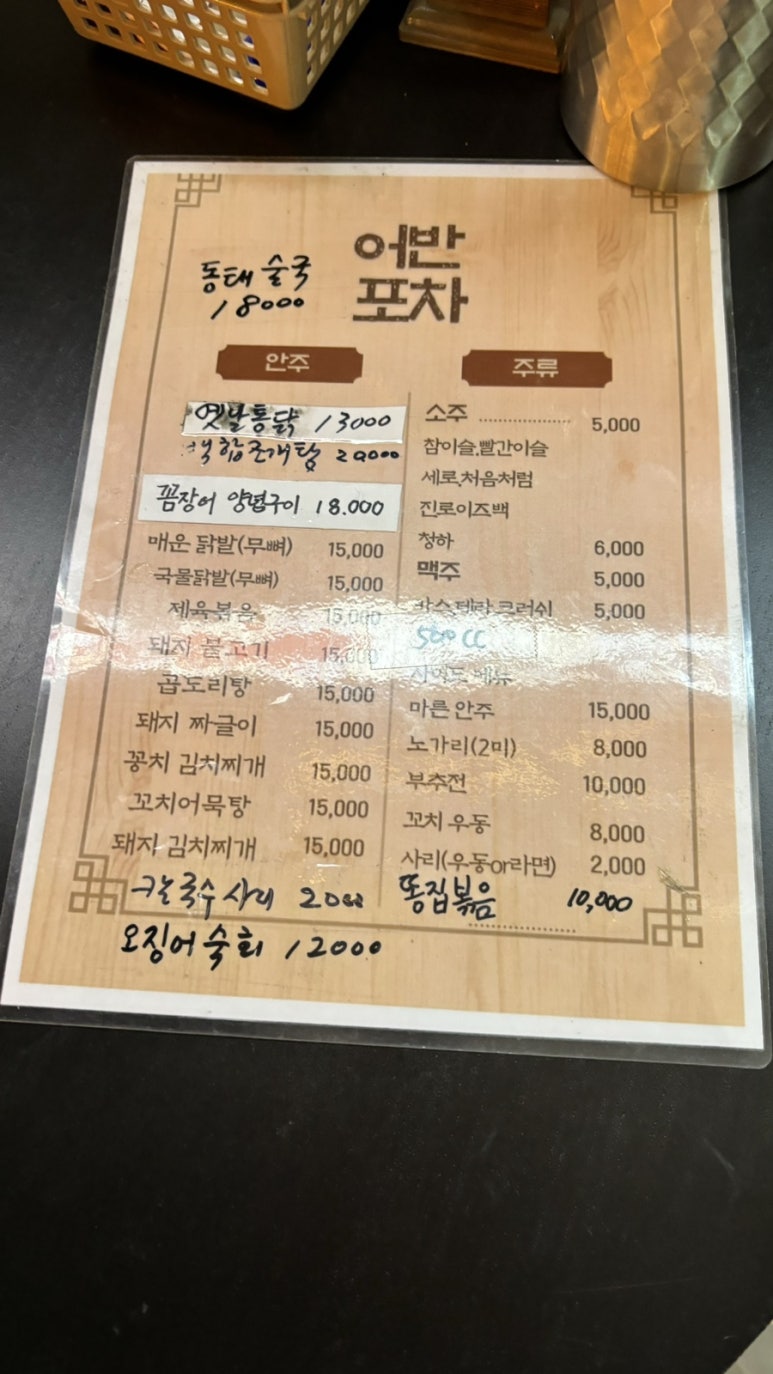 어반
포차
동태 술국
18000
안주
옛날통닭 13000
백합조개탕 20000
꼼장어 양념구이 18.000
매운 닭발(무뼈) 15,000
국물닭발(무뼈) 15,000
제육볶음 15,000
돼지 불고기 15,000
곱도리탕 15,000
돼지 짜글이 15,000
꽁치 김치찌개 15,000
꼬치어묵탕 15,000
돼지 김치찌개 15,000
칼국수 사리 2000
오징어숙회 12000
주류
소주 5,000
참이슬.빨간이슬
세로.처음처럼
진로이즈백
청하 6,000
맥주 5,000
카스.테라.크러쉬 5,000
500 CC
사이드 메뉴
마른 안주 15,000
노가리(2미) 8,000
부추전 10,000
꼬치 우동 8,000
사리(우동or라면) 2,000
똥집볶음 10,000